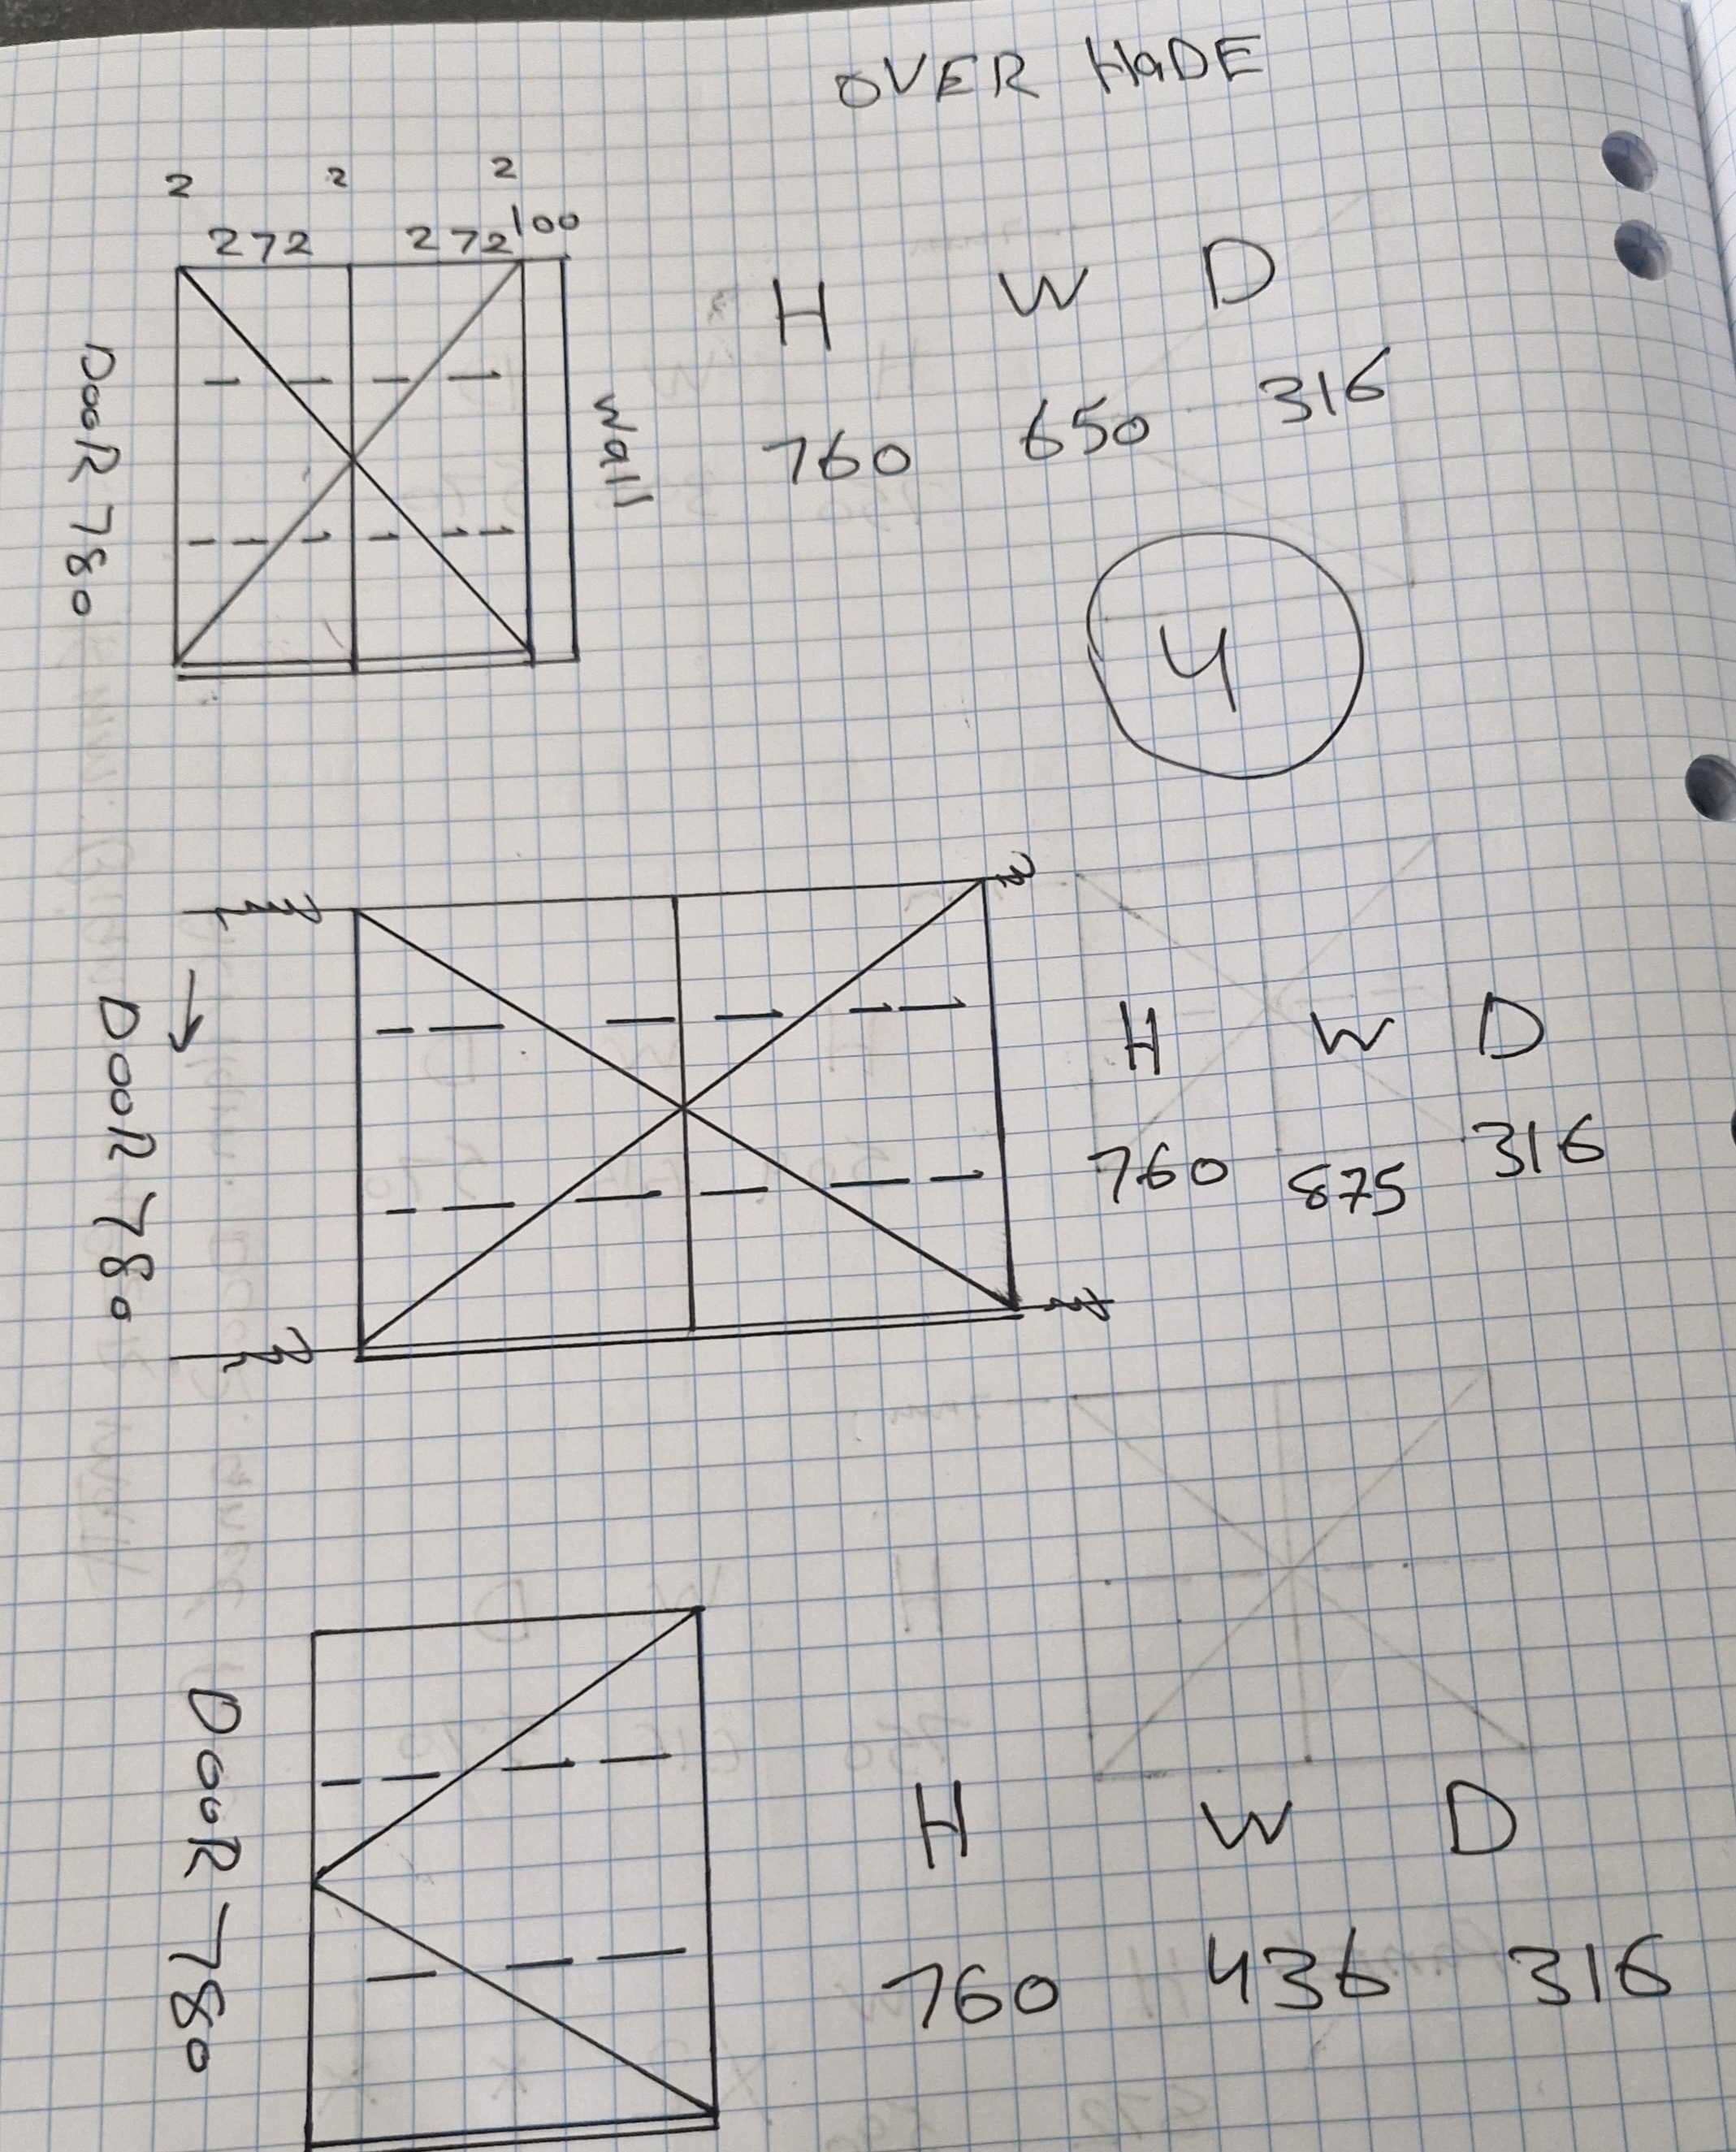 OVER HaDE
2 2 2
272 272 100
DooR 780
wall
H W D
760 650 316
4
DOOR 780
H W D
760 875 316
DooR 780
H W D
760 436 316